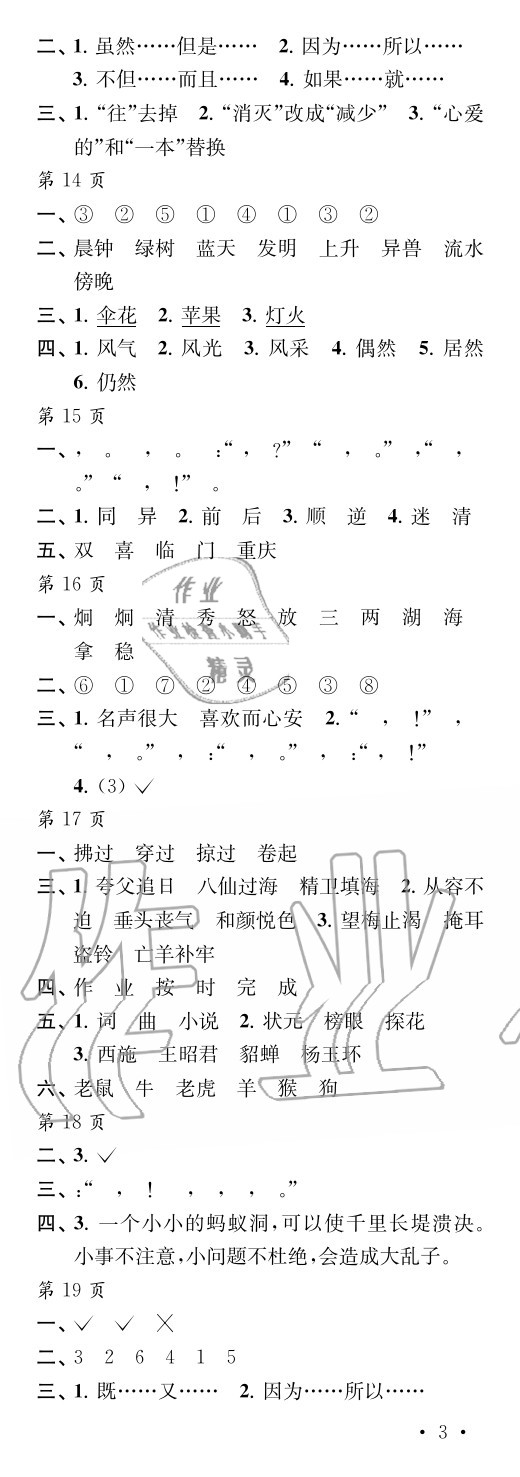 二、1. 虽然……但是…… 2. 因为……所以……
3. 不但……而且…… 4. 如果……就……
三、1. “往”去掉 2. “消灭”改成“减少” 3. “心爱
的”和“一本”替换
第 14 页
一、③ ② ⑤ ① ④ ① ③ ②
二、晨钟 绿树 蓝天 发明 上升 异兽 流水
傍晚
三、1. 伞花 2. 苹果 3. 灯火
四、1. 风气 2. 风光 3. 风采 4. 偶然 5. 居然
6. 仍然
第 15 页
一、， 。 ， 。 ：“ ， ？” “ ， 。” ，“ ，
。” “ ， ！” 。
二、1. 同 异 2. 前 后 3. 顺 逆 4. 迷 清
五、双 喜 临 门 重庆
第 16 页
一、炯 炯 清 秀 怒 放 三 两 湖 海
拿 稳
二、⑥ ① ⑦ ② ④ ⑤ ③ ⑧
三、1. 名声很大 喜欢而心安 2. “ ， ！” ，
“ ， 。” ， ：“ ， 。” ， ：“ ， ！”
4. （3）✓
第 17 页
一、拂过 穿过 掠过 卷起
三、1. 夸父追日 八仙过海 精卫填海 2. 从容不
迫 垂头丧气 和颜悦色 3. 望梅止渴 掩耳
盗铃 亡羊补牢
四、作 业 按 时 完 成
五、1. 词 曲 小说 2. 状元 榜眼 探花
3. 西施 王昭君 貂蝉 杨玉环
六、老鼠 牛 老虎 羊 猴 狗
第 18 页
二、3. ✓
三、：“ ， ！ ， ， ， 。”
四、3. 一个小小的蚂蚁洞，可以使千里长堤溃决。
小事不注意，小问题不杜绝，会造成大乱子。
第 19 页
一、✓ ✓ ✗
二、3 2 6 4 1 5
三、1. 既……又…… 2. 因为……所以……
· 3 ·
作业
作业检查小帮手
精灵
作业